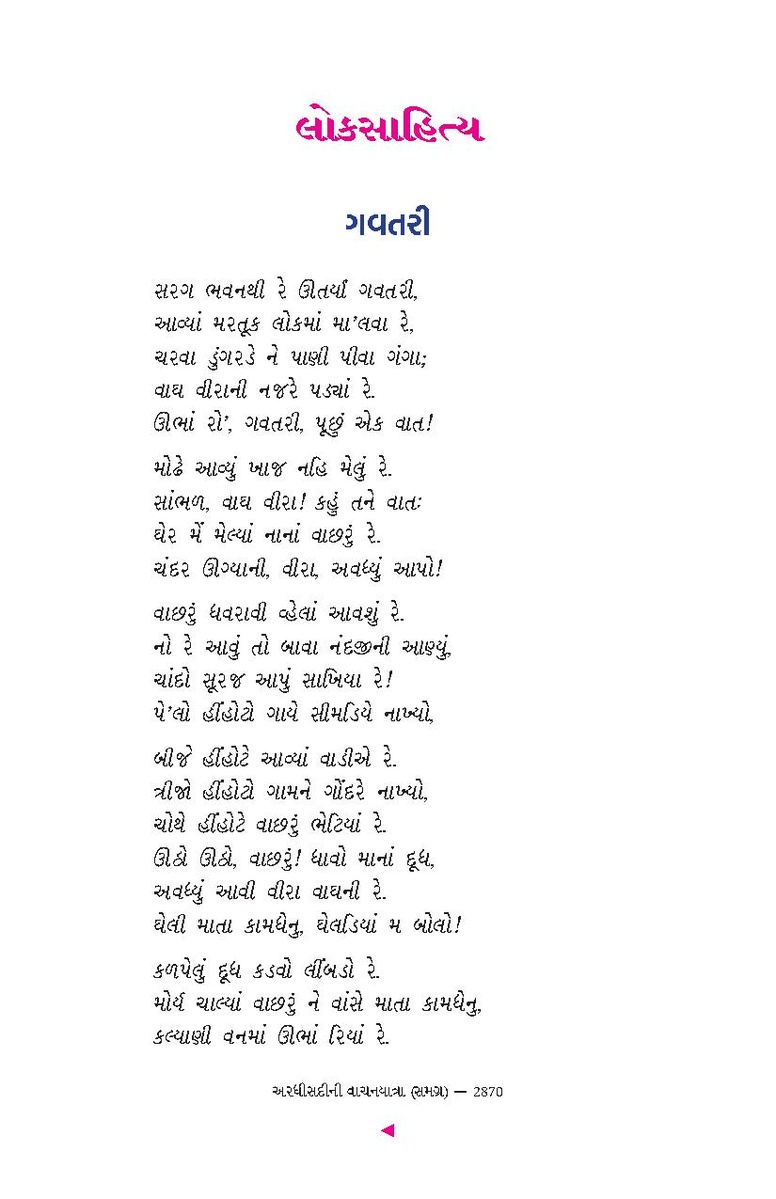 લોકસાહિત્ય
ગવતરી
સરગ ભવનથી રે ઊતર્યાં ગવતરી,
આવ્યાં મરતૂક લોકમાં મા’લવા રે,
ચરવા ડુંગરડે ને પાણી પીવા ગંગા;
વાઘ વીરાની નજરે પડ્યાં રે.
ઊભાં રો’, ગવતરી, પૂછું એક વાત!
મોઢે આવ્યું ખાજ નહિ મેલું રે.
સાંભળ, વાઘ વીરા! કહું તને વાતઃ
ઘેર મેં મેલ્યાં નાનાં વાછરું રે.
ચંદર ઊગ્યાની, વીરા, અવધ્યું આપો!
વાછરું ધવરાવી વ્હેલાં આવશું રે.
નો રે આવું તો બાવા નંદજીની આણ્યું,
ચાંદો સૂરજ આપું સાખિયા રે!
પે’લો હીંહોટો ગાયે સીમડિયે નાખ્યો,
બીજે હીંહોટે આવ્યાં વાડીએ રે.
ત્રીજો હીંહોટો ગામને ગોંદરે નાખ્યો,
ચોથે હીંહોટે વાછરું ભેટિયાં રે.
ઊઠો ઊઠો, વાછરું! ધાવો માનાં દૂધ,
અવધ્યું આવી વીરા વાઘની રે.
ઘેલી માતા કામધેનુ, ઘેલડિયાં મ બોલો!
કળપેલું દૂધ કડવો લીંબડો રે.
મોર્ય ચાલ્યાં વાછરું ને વાંસે માતા કામધેનુ,
કલ્યાણી વનમાં ઊભાં રિયાં રે.
અરધીસદીની વાચનયાત્રા (સમગ્ર) — 2870